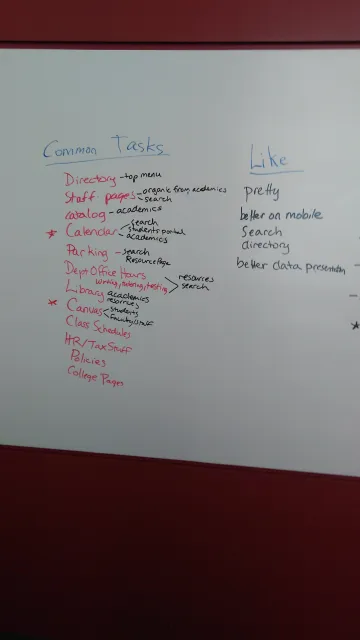 Common Tasks
Directory - top menu
Staff pages - organic from academics
- search
catalog - academics
* Calendar - search
students portal
academics
Parking - search
Resource page
Dept Office Hours
writing, tutoring, testing > resources
search
Library academics
resources
* Canvas < students
faculty/staff
Class Schedules
HR/Tax Staff
Policies
College Pages
Like
pretty
better on mobile
search
directory
better data presentation -
-
*